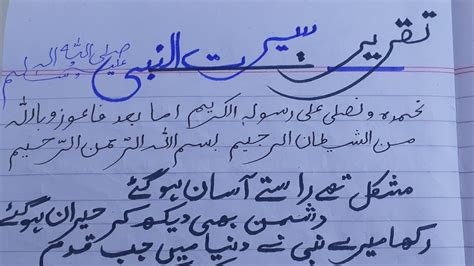 تقریر سیرت النبی صلی اللہ علیہ والہ وسلم
نحمدہ ونصلی علی رسولہ الکریم اما بعد فاعوذ وباللہ
من الشیطان الرجیم بسم اللہ الرحمن الرحیم
مشکل تھے راستے آسان ہو گئے
دشمن بھی دیکھ کر حیران ہو گئے
رکھا میرے نبی نے دنیا میں جب قدم